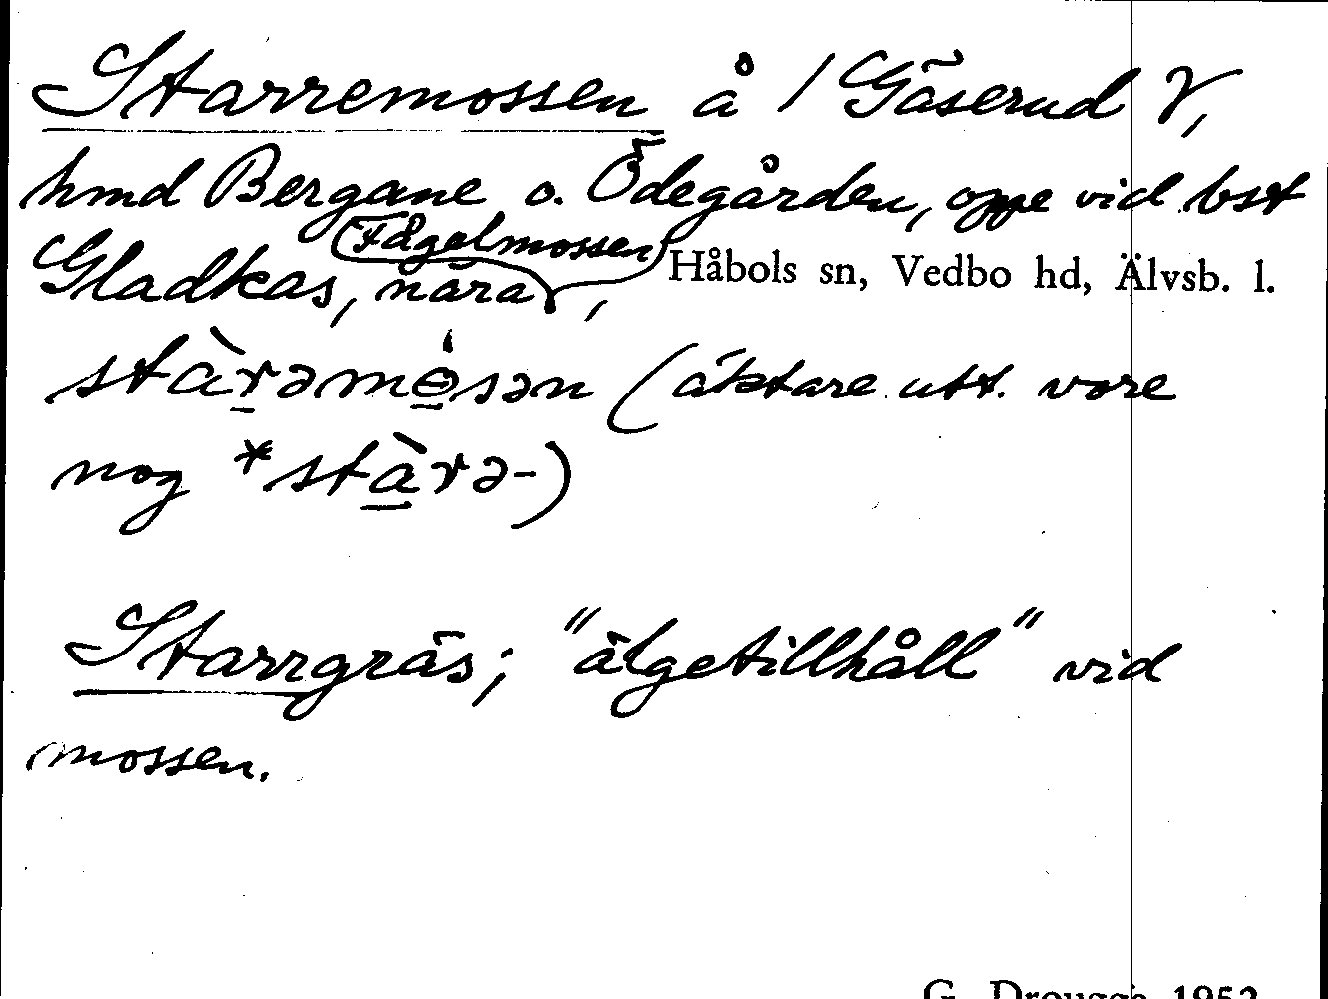 Starremossen å / Gäserud V,
hmd Bergane o. Ödegården, oppe vid bst
Gladkas, nära Fågelmossen, Håbols sn, Vedbo hd, Älvsb. l.
stàrəmɵ́sən (äktare utt. vore
nog *stàrə-)
Starrgräs; "älgetillhåll" vid
mossen.
G. Drougge 1952